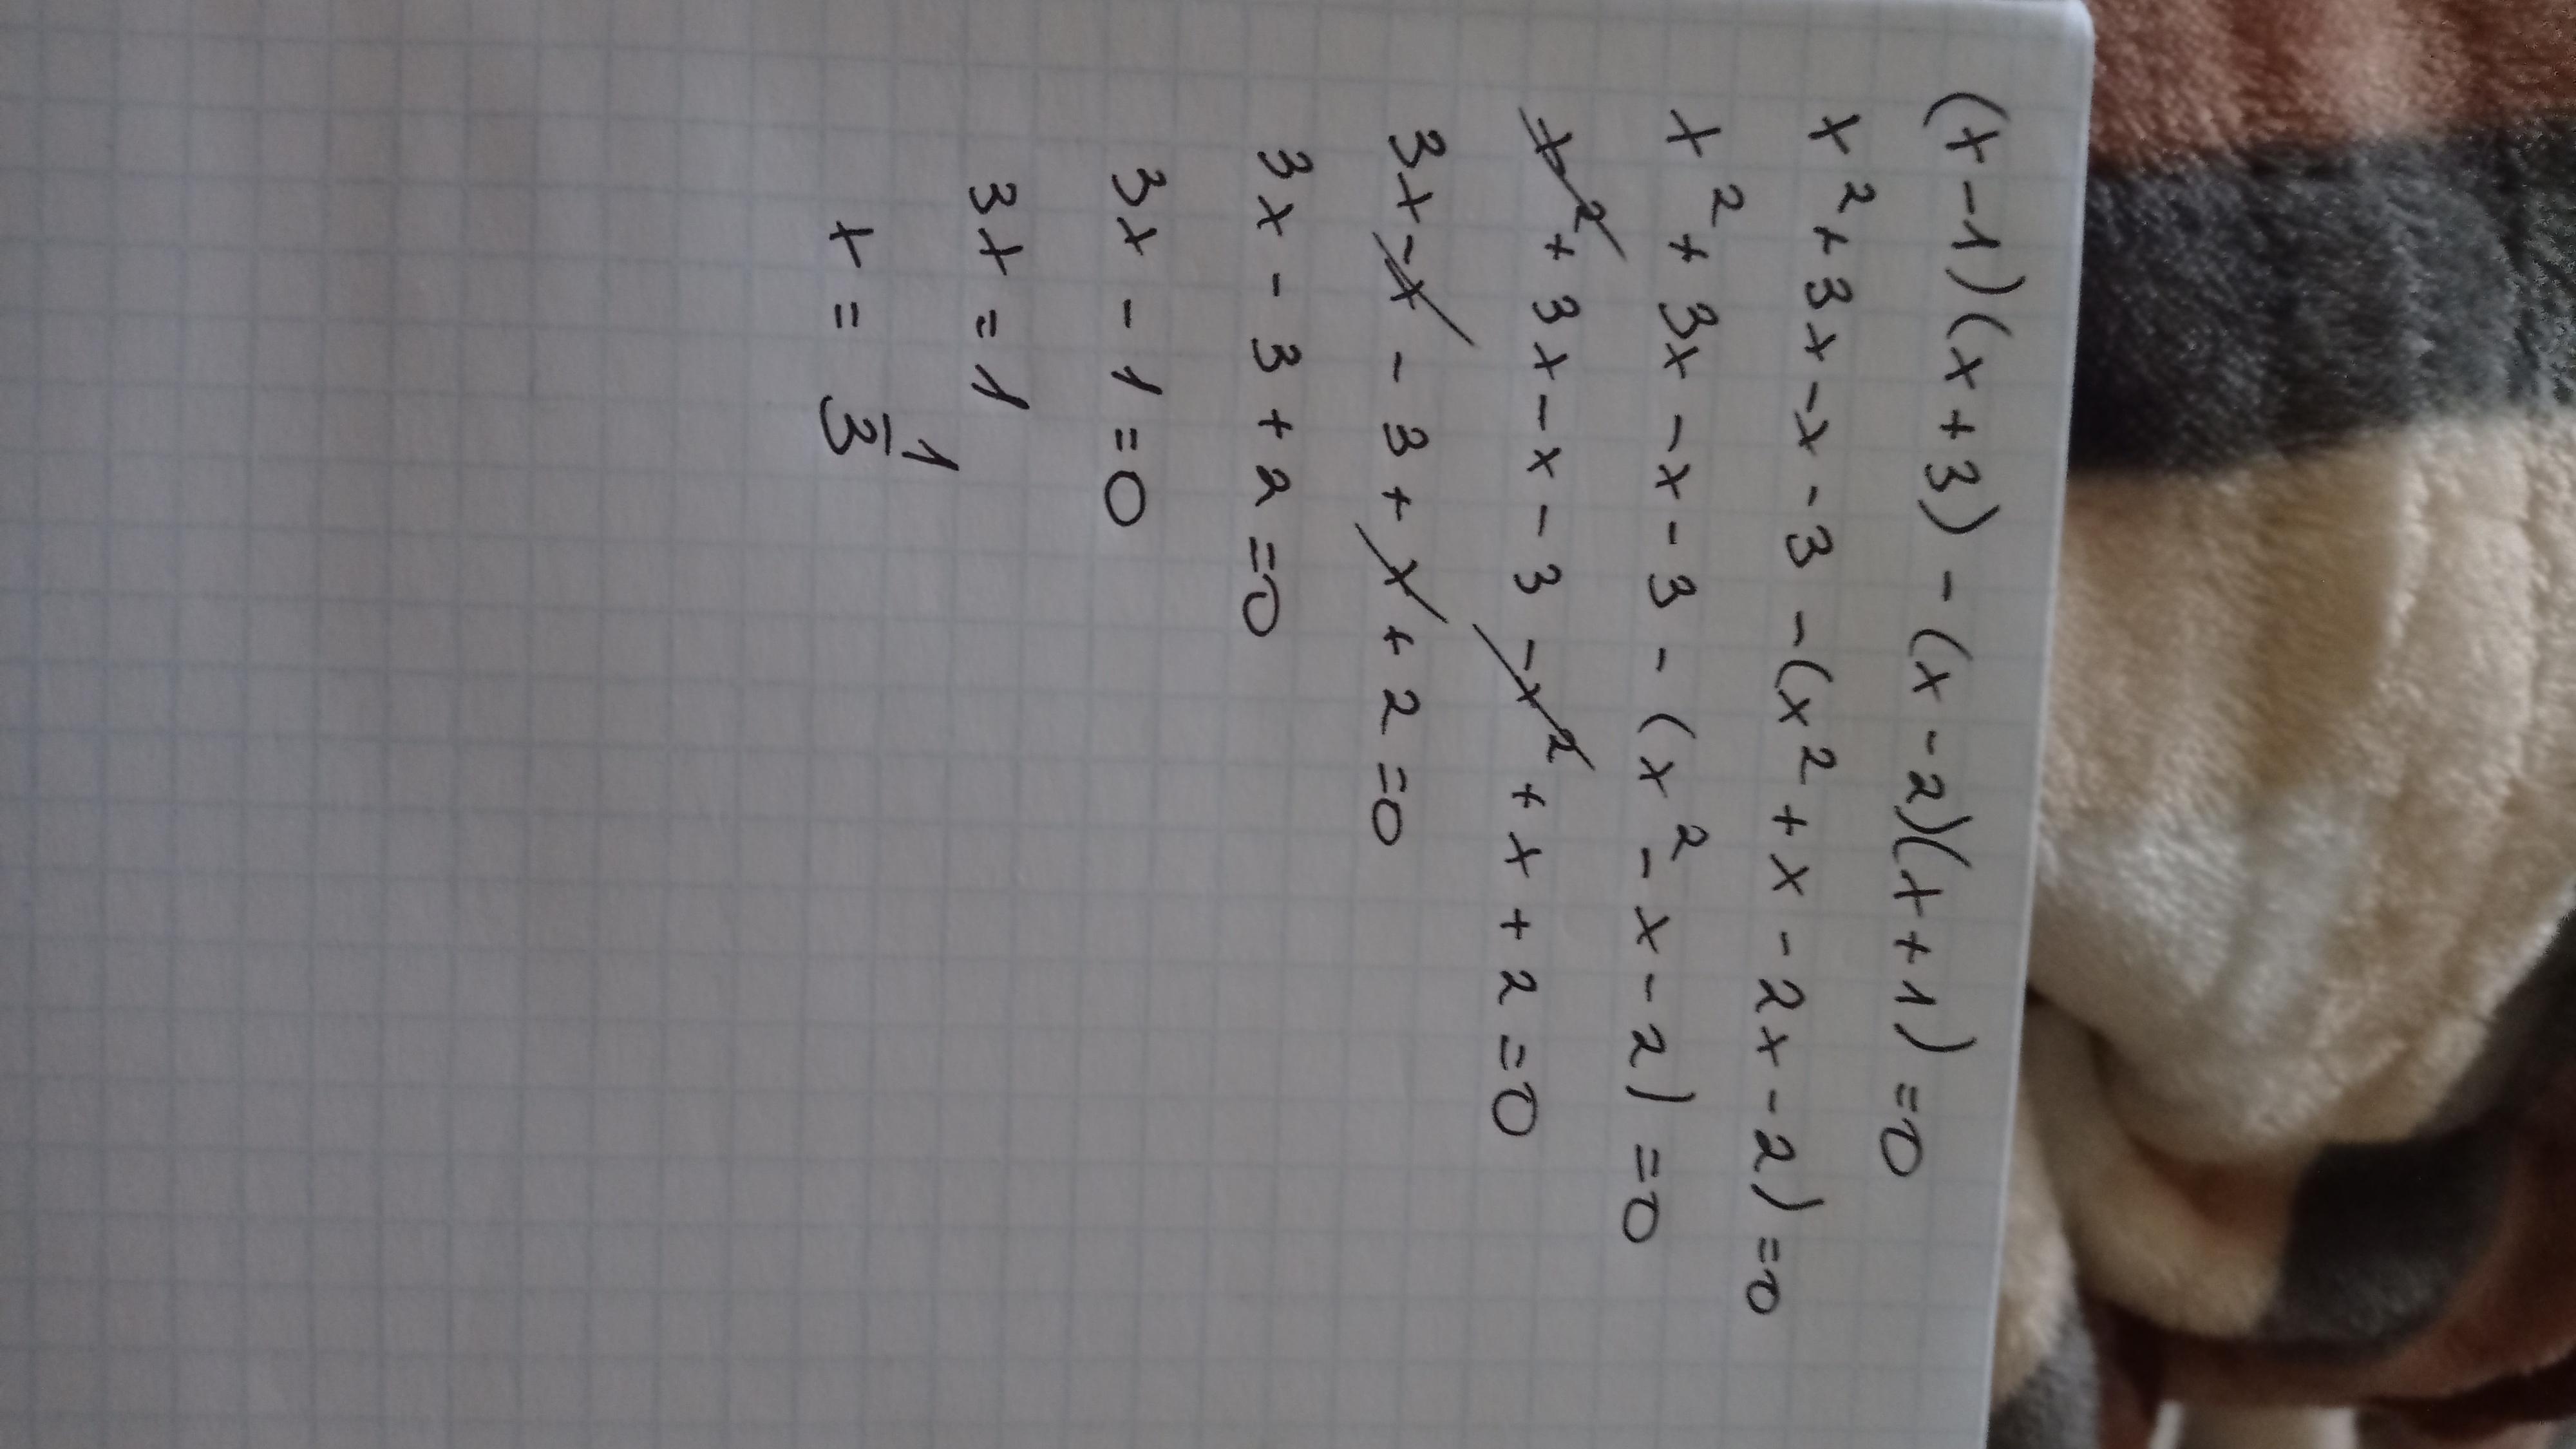 (x-1)(x+3)-(x-2)(x+1)=0
x²+3x-x-3-(x²+x-2x-2)=0
x²+3x-x-3-(x²-x-2)=0
x²+3x-x-3-x²+x+2=0
3x-x-3+x+2=0
3x-3+2=0
3x-1=0
3x=1
x=1/3